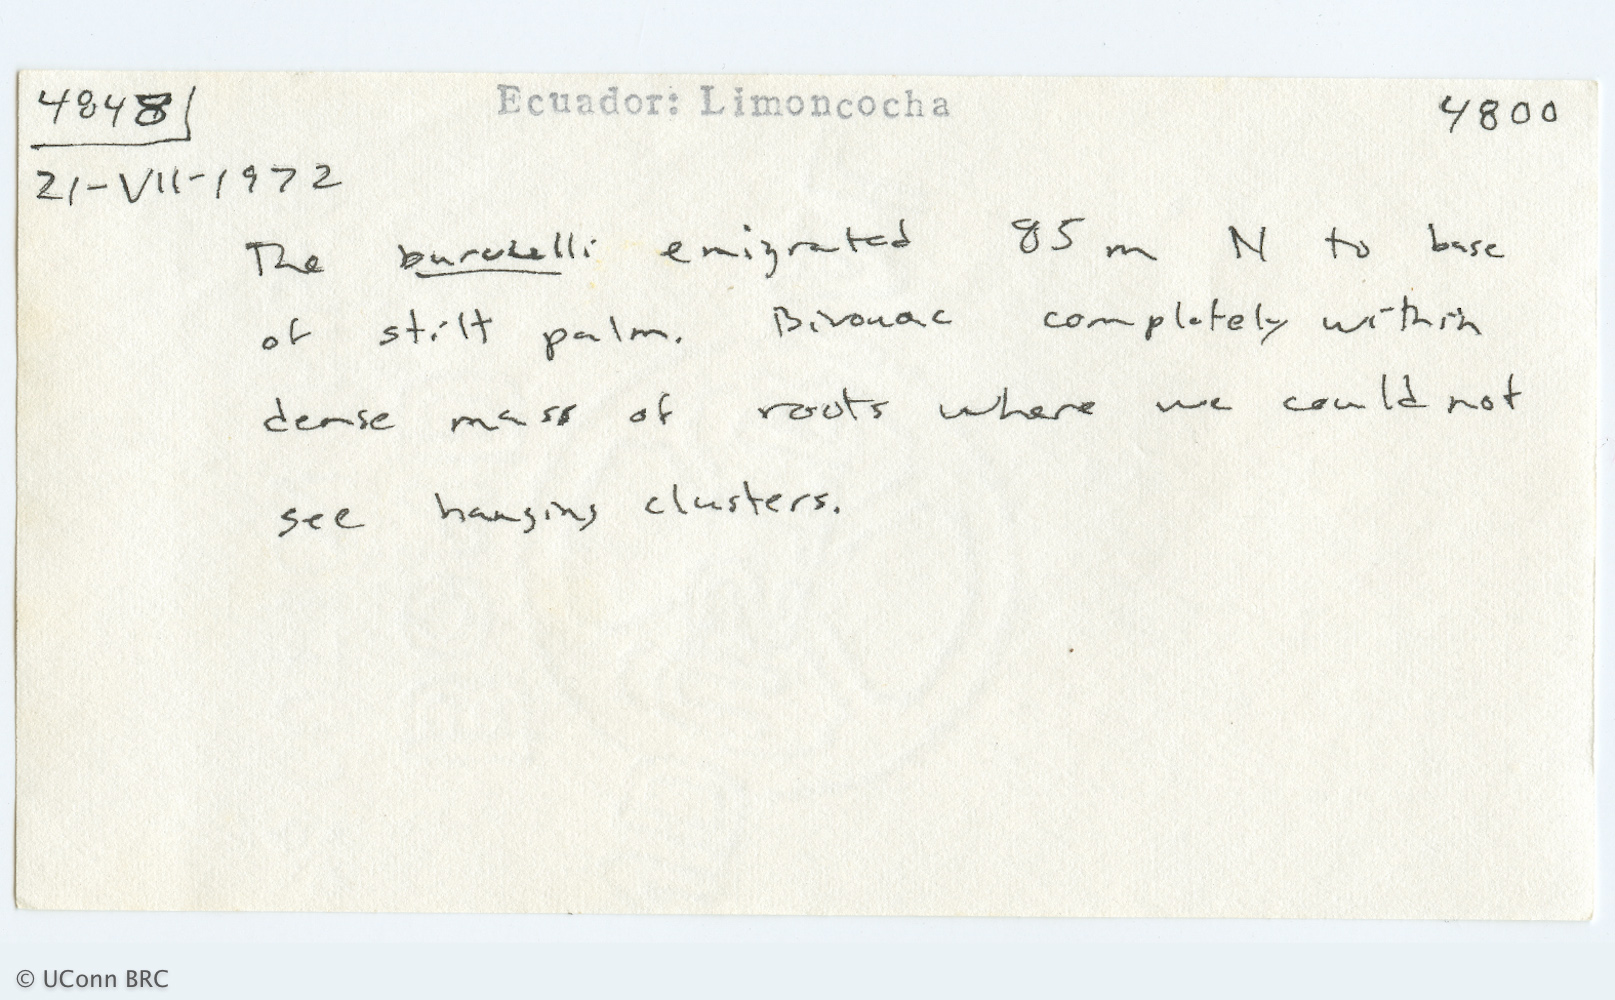 4848
Ecuador: Limoncocha
4800
21-VII-1972
The burchelli emigrated 85 m N to base
of stilt palm. Bivouac completely within
dense mass of roots where we could not
see hanging clusters.
© UConn BRC